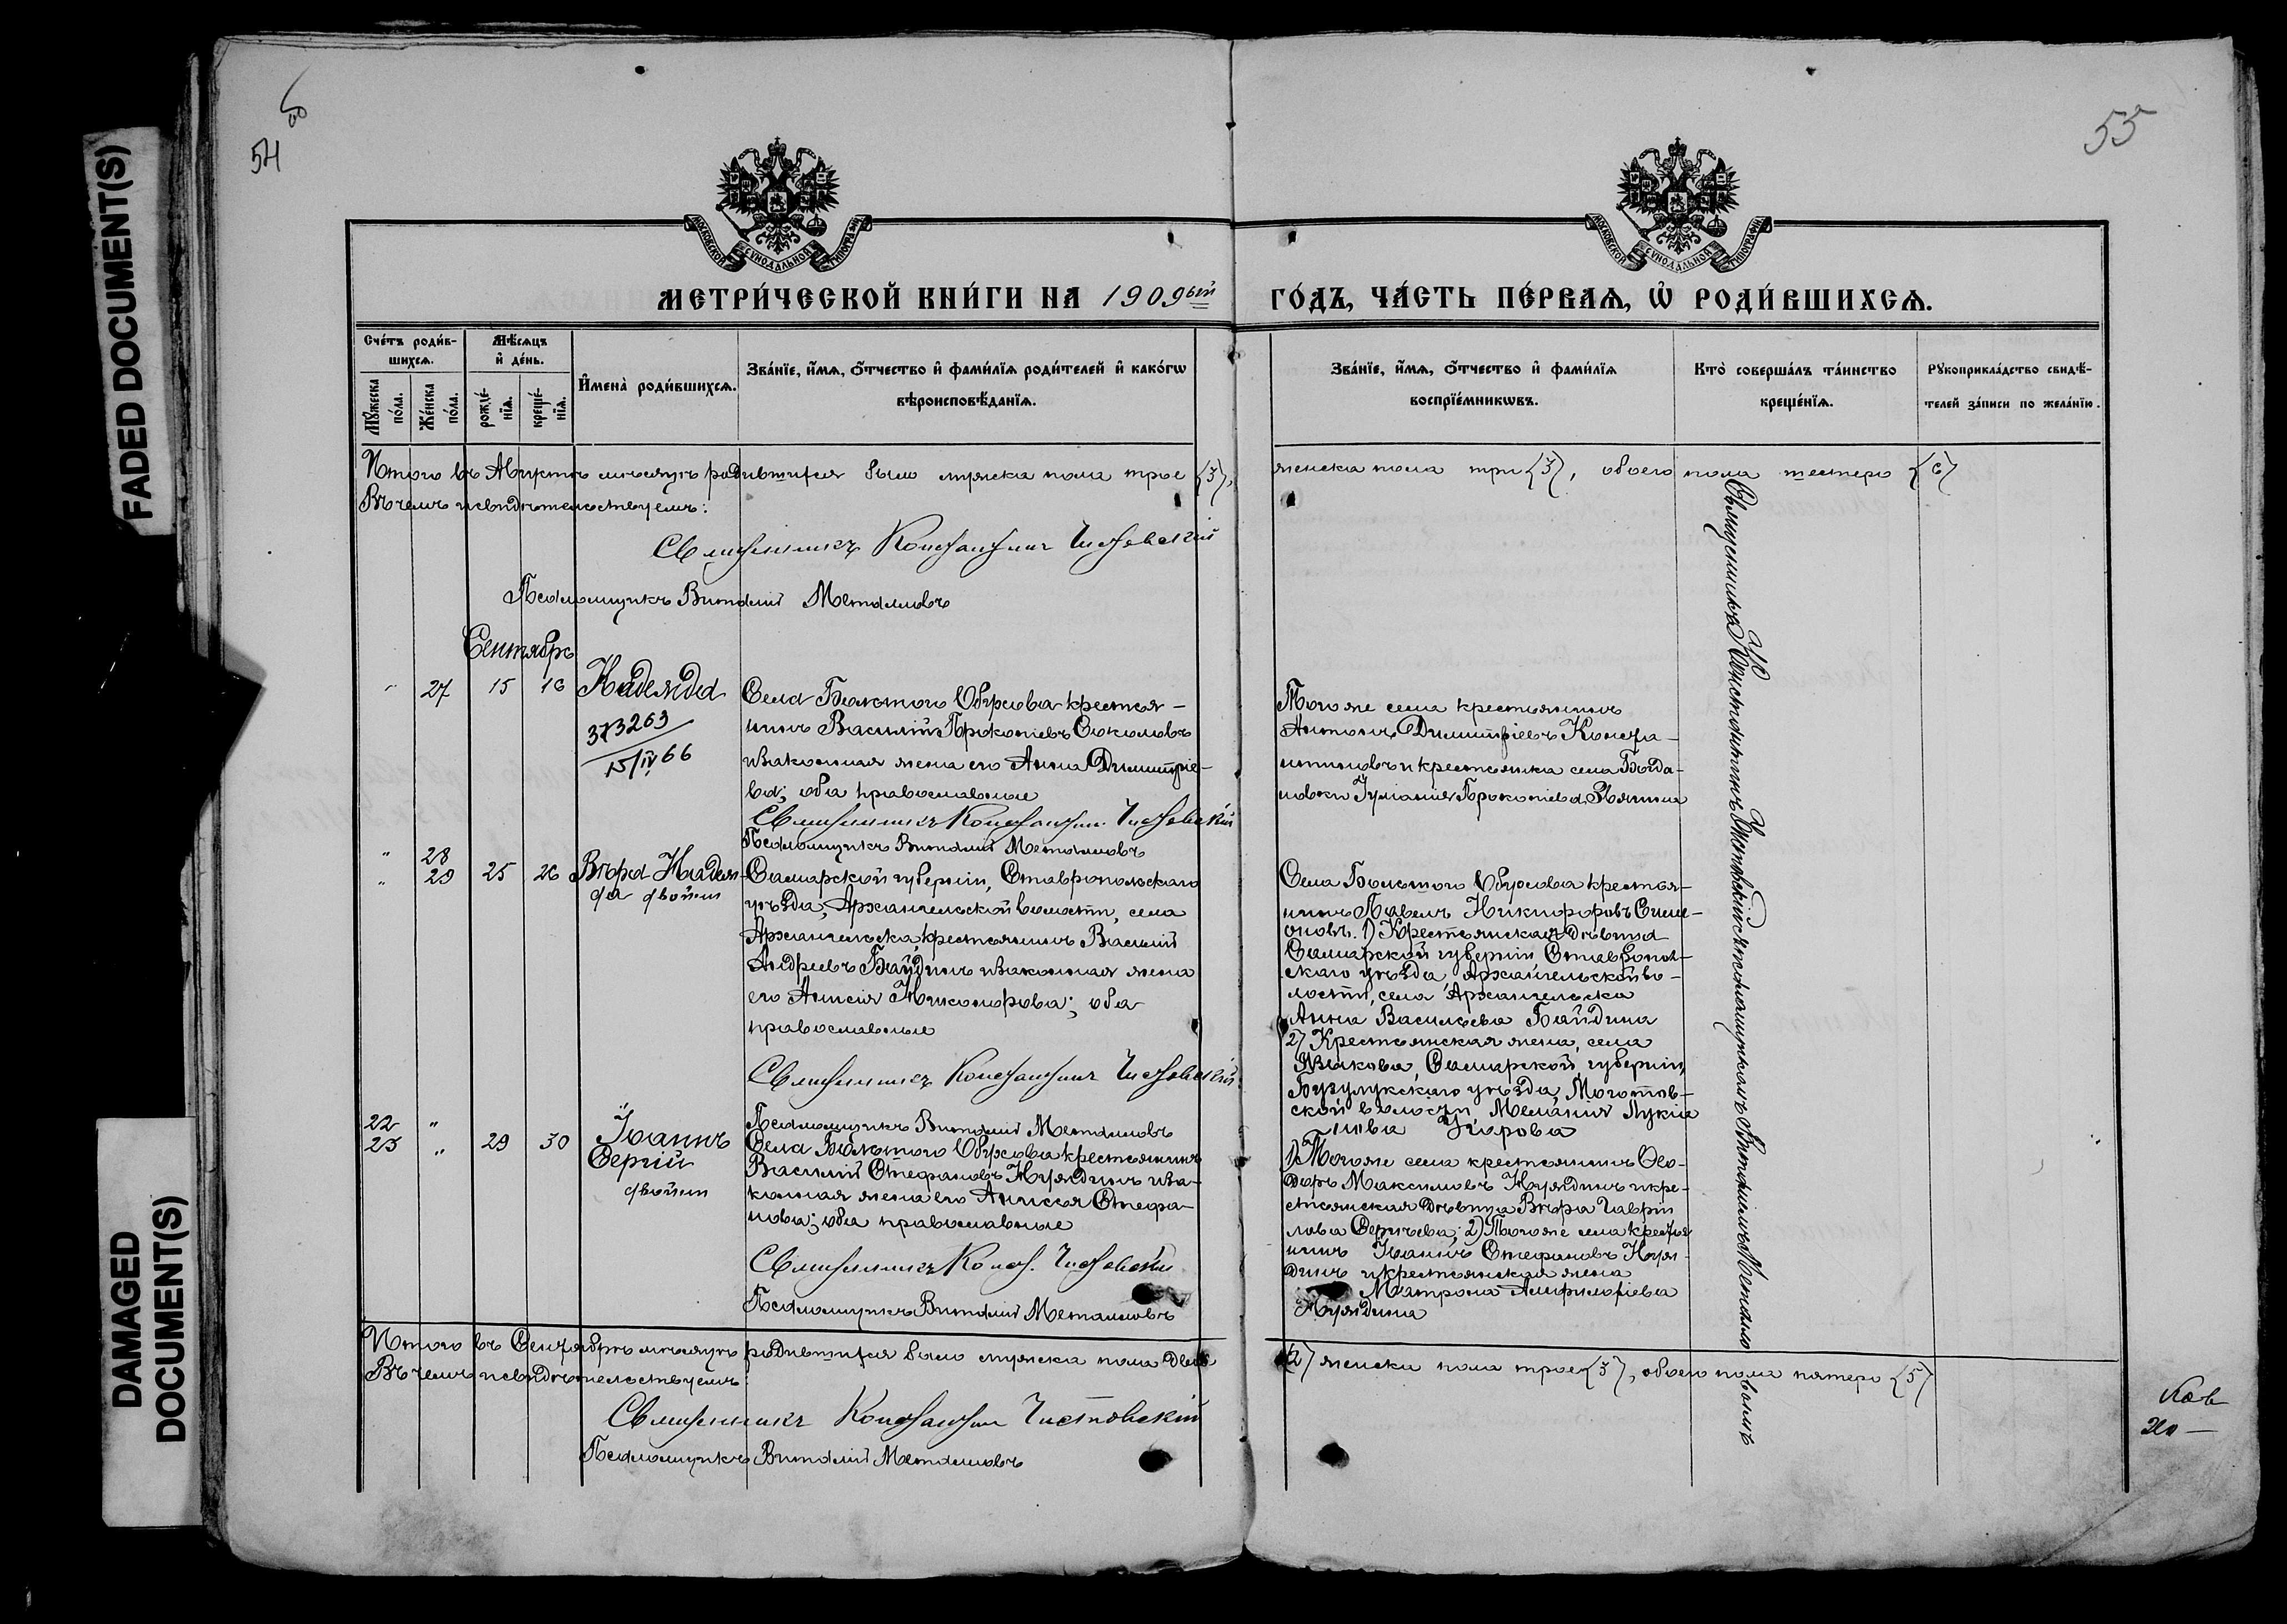 FADED DOCUMENT(S)
DAMAGED
DOCUMENT(S)
54 об
55
МОСКОВСКОЙ СѴНОДАЛЬНОЙ ТИПОГРАФИИ
МОСКОВСКОЙ СѴНОДАЛЬНОЙ ТИПОГРАФИИ
МЕТРИ́ЧЕСКОЙ КНИ́ГИ НА 1909ый ГО́ДЪ, ЧА́СТЬ ПЕ́РВАѦ, Ѡ҆ РОДИ́ВШИХСѦ.
Сче́тъ роди́в-
шихсѧ.
Мꙋ́жеска по́ла.
Же́нска по́ла.
Мѣ́сѧцъ
и҆ де́нь.
рожде́-
нїѧ.
креще́-
нїѧ.
И҆мена̀ роди́вшихсѧ.
Зва́нїе, и҆́мѧ, ѻ҆́тчество и҆ фами́лїѧ роди́телей и҆ како́гѡ
вѣроисповѣ́данїѧ.
Зва́нїе, и҆́мѧ, ѻ҆́тчество и҆ фами́лїѧ
воспрїе́мникѡвъ.
Кто̀ соверша́лъ та́инство
креще́нїѧ.
Рꙋкоприкла́дство свидѣ́-
телей за́писи по жела́нїю.
Итого въ Августѣ мѣсяцѣ родившихся было мужска пола трое {3}, женска пола три {3}, обоего пола шестеро {6}
Въ чемъ и свидѣтельствуемъ:
Священникъ Константинъ Чистовский
Псаломщикъ Виталий Металловъ
Сентябрь
" 27 15 16 Надежда
373263
15/IV 66
Села Большого Обухова крестья-
нинъ Василий Прокопиевъ Соколовъ
и законная жена его Анна Димитрие-
ва; оба православные
Священникъ Константин Чистовский
Псаломщикъ Виталий Металловъ
Того же села крестьянинъ
Антонъ Димитриевъ Конста-
нтиновъ и крестьянка села Богда-
новки Иулиания Прокопиева
" 28
" 29 25 26 Вѣра Надеж-
да двойни
Самарской губернии, Ставропольскаго
уѣзда, Архангельской волости, села
Архангельска, крестьянинъ Василий
Андреевъ Байдинъ и законная жена
его Анисия Никанорова; оба
православные
Священникъ Константинъ Чистовский
Псаломщикъ Виталий Металловъ
Села Большого Обухова крестья-
нинъ Павелъ Никифоровъ Симе-
оновъ. 1) Крестьянская дѣвица
Самарской губернии, Ставрополь-
скаго уѣзда, Архангельской во-
лости, села Архангельска
Анна Васильева Байдина
2) Крестьянская жена, села
Языкова, Самарской губернии,
Бузулукскаго уѣзда, Могутов-
ской волости, Мелания Лукиа
нова Угарова
22 "
23 " 29 30 Иоаннъ
Сергий
двойни
Села Большого Обухова крестьянинъ
Василий Стефановъ Нуждинъ и за-
конная жена его Анисия Стефа-
нова; оба православные
Священникъ Конст. Чистовский
Псаломщикъ Виталий Металловъ
1) Того же села крестьянинъ Ѳео-
доръ Максимовъ Нуждинъ и кре-
стьянская дѣвица Вѣра Гаври
лова Сергѣева; 2) Того же села крестья
нинъ Иоаннъ Стефановъ Нуж-
динъ и крестьянская жена
Матрона Амфилофиева
Нуждина
Священникъ Константинъ Чистовский съ псаломщикомъ Виталиемъ Металло
вымъ
Итого въ Сентябрѣ мѣсяцѣ родившихся было мужска пола двое {2} женска пола трое {3}, обоего пола пятеро {5}
Въ чемъ и свидѣтельствуемъ:
Священникъ Константин Чистовский
Псаломщикъ Виталий Металловъ